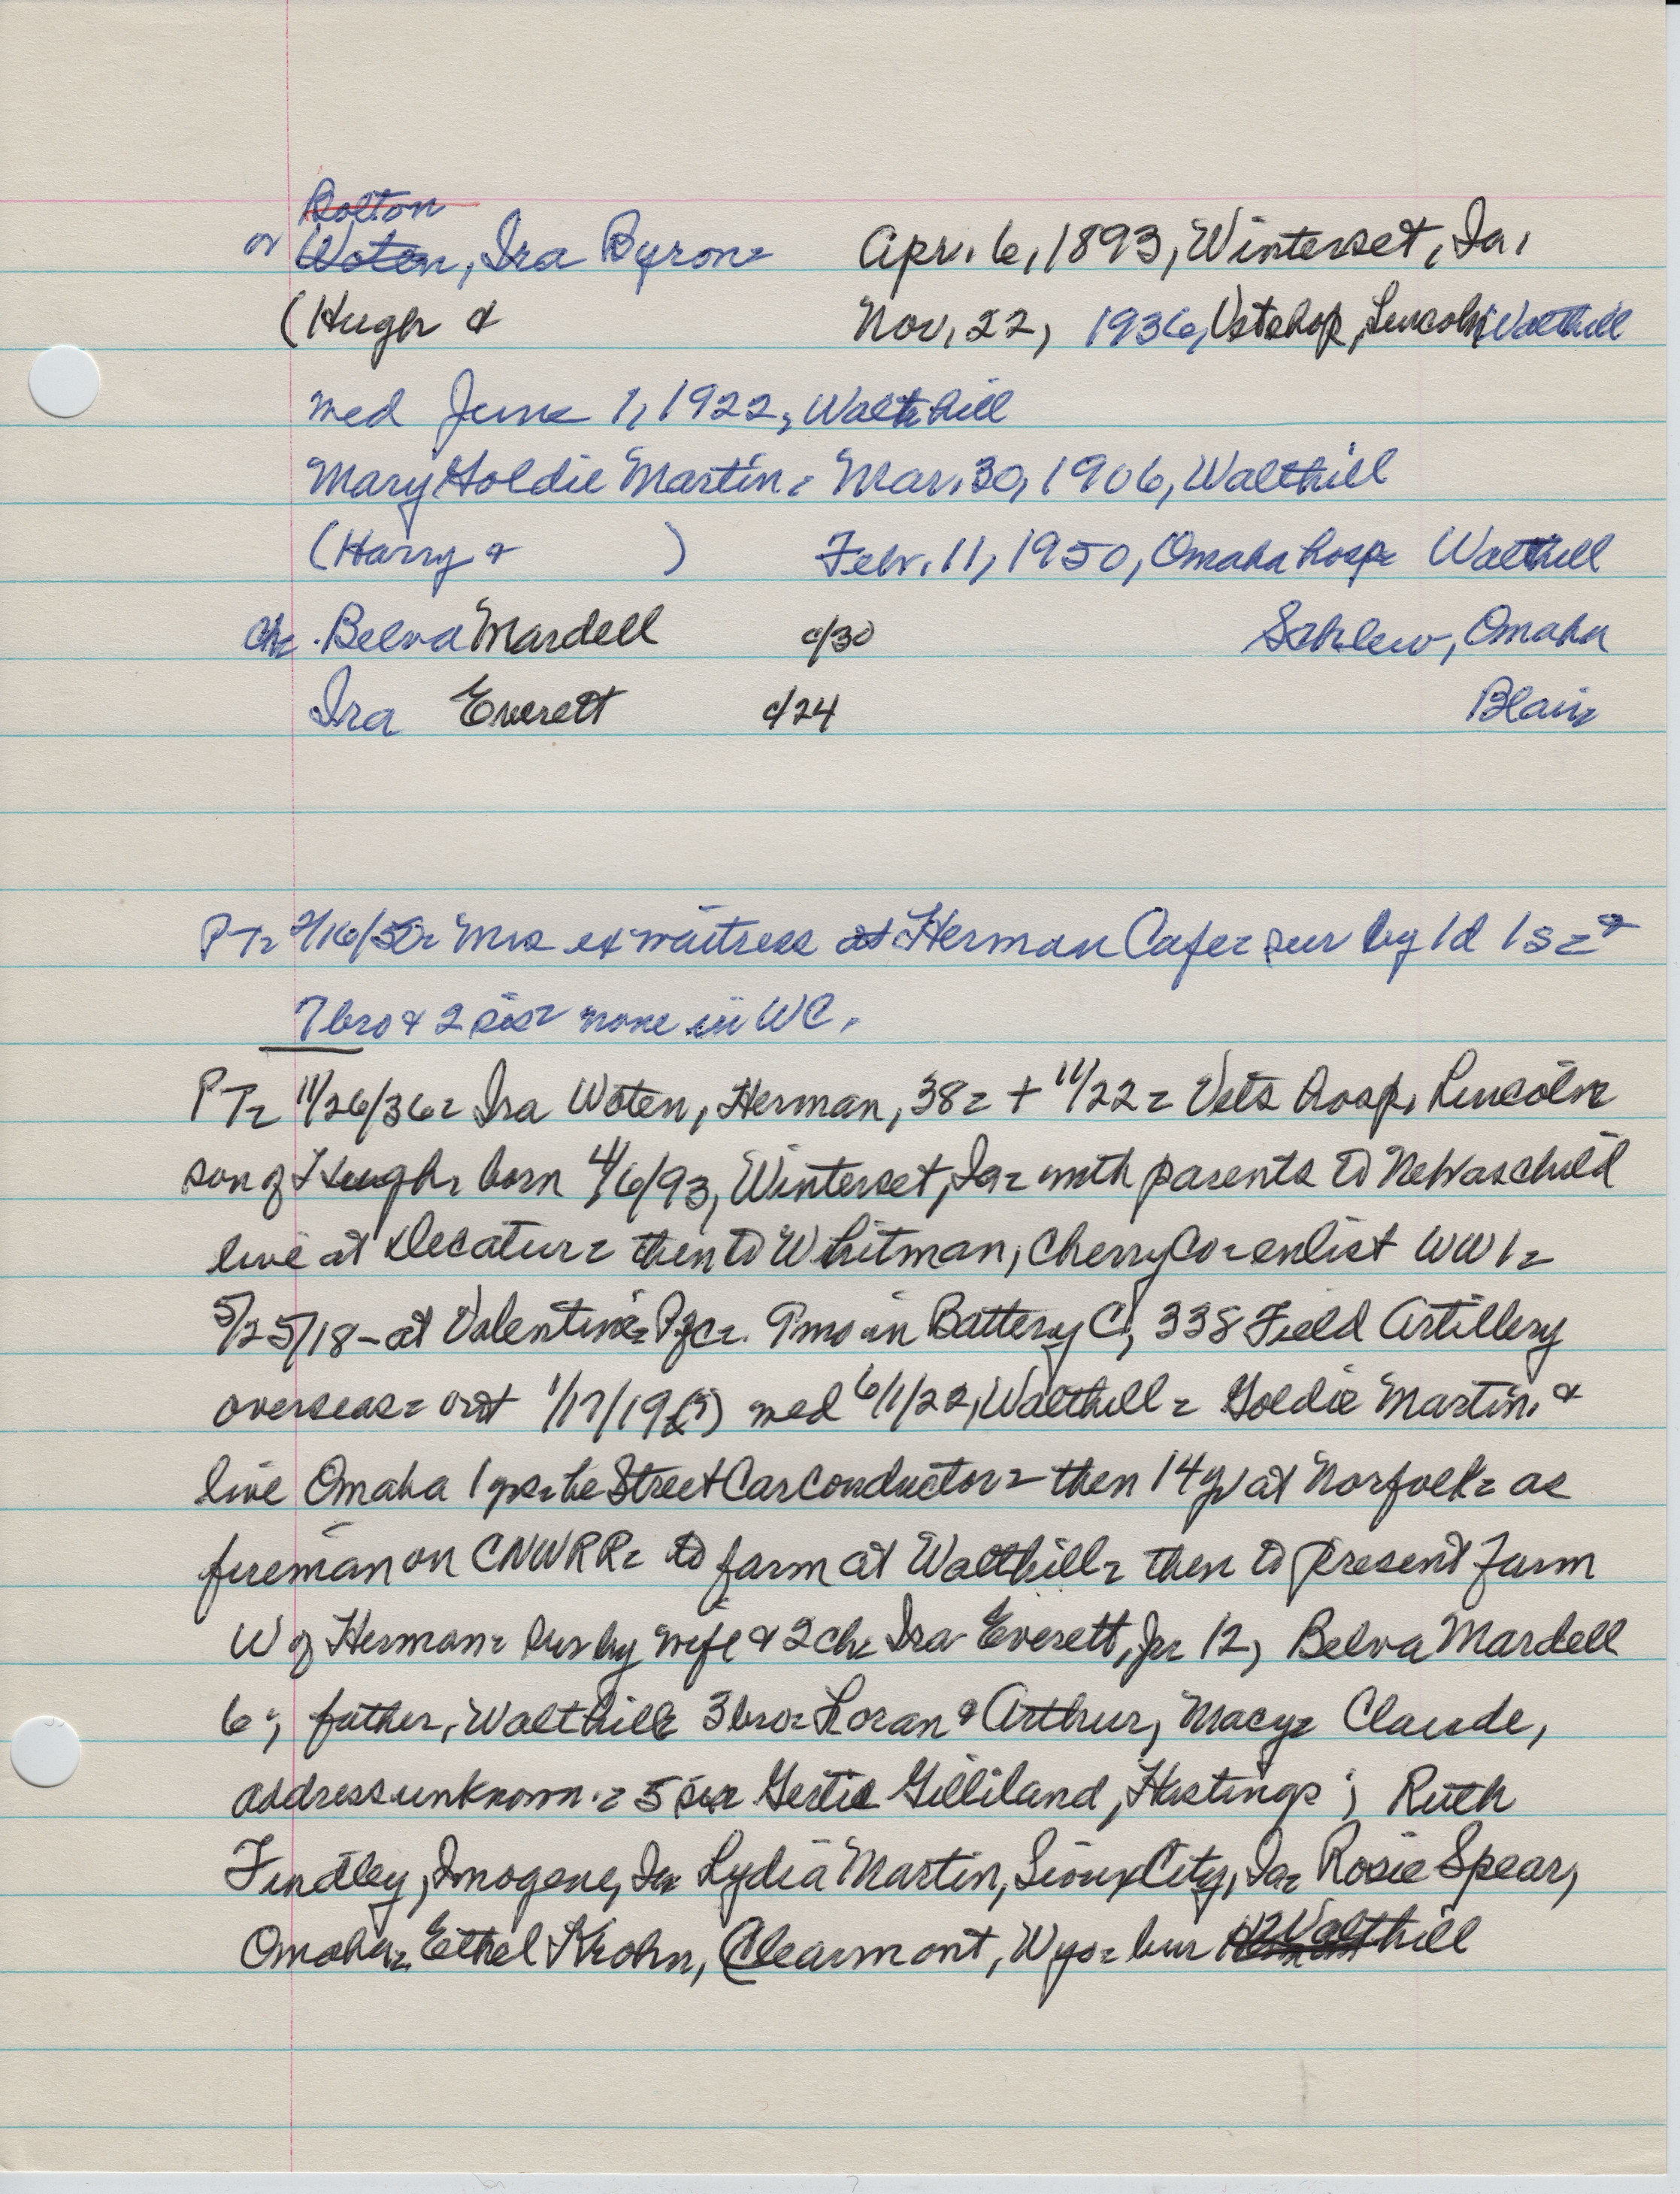 Bolton
or Woten, Ira Byron= Apr. 6, 1893, Winterset, Ia.
(Hugh & Nov. 22, 1936, Vets hosp, Lincoln Walthill
med June 1, 1922, Walthill
Mary Goldie Martin = Mar. 30, 1906, Walthill
(Harry & ) Febr. 11, 1950, Omaha hosp= Walthill
Ch= Belva Mardell c/30 Omaha
Ira Everett c/24 Blair
PT= 2/16/50= Mrs ex waitress at Herman Cafe= sur by 1d 1s= &
7 bro & 2 sis= none in WC.
PT= 11/26/36= Ira Woten, Herman, 38= + 11/22= Vets hosp, Lincoln
son of Hugh= born 4/6/93, Winterset, Ia= with parents to Neb as child
live at Decatur= then to Whitman, Cherry Co= enlist WW1=
5/25/18- at Valentine= Pfc=. 9 mo in Battery C, 338 Field Artillery
overseas= out 1/17/19(?) med 6/1/22, Walthill= Goldie Martin. &
live Omaha 1 yr= he Street Car Conductor= then 14 y at Norfolk= as
fireman on CNWRR= to farm at Walthill= then to present farm
W of Herman= sur by wife & 2 ch= Ira Everett, Jr= 12, Belva Mardell
6; father, Walthill 3 bro= Loran & Arthur, Macy= Claude,
address unknown.= 5 sis= Gertie Gilliland, Hastings; Ruth
Findley, Imogene, Ia= Lydia Martin, Sioux City, Ia= Rosie Spear,
Omaha= Ethel Krohn, Clearmont, Wyo= bur Walthill